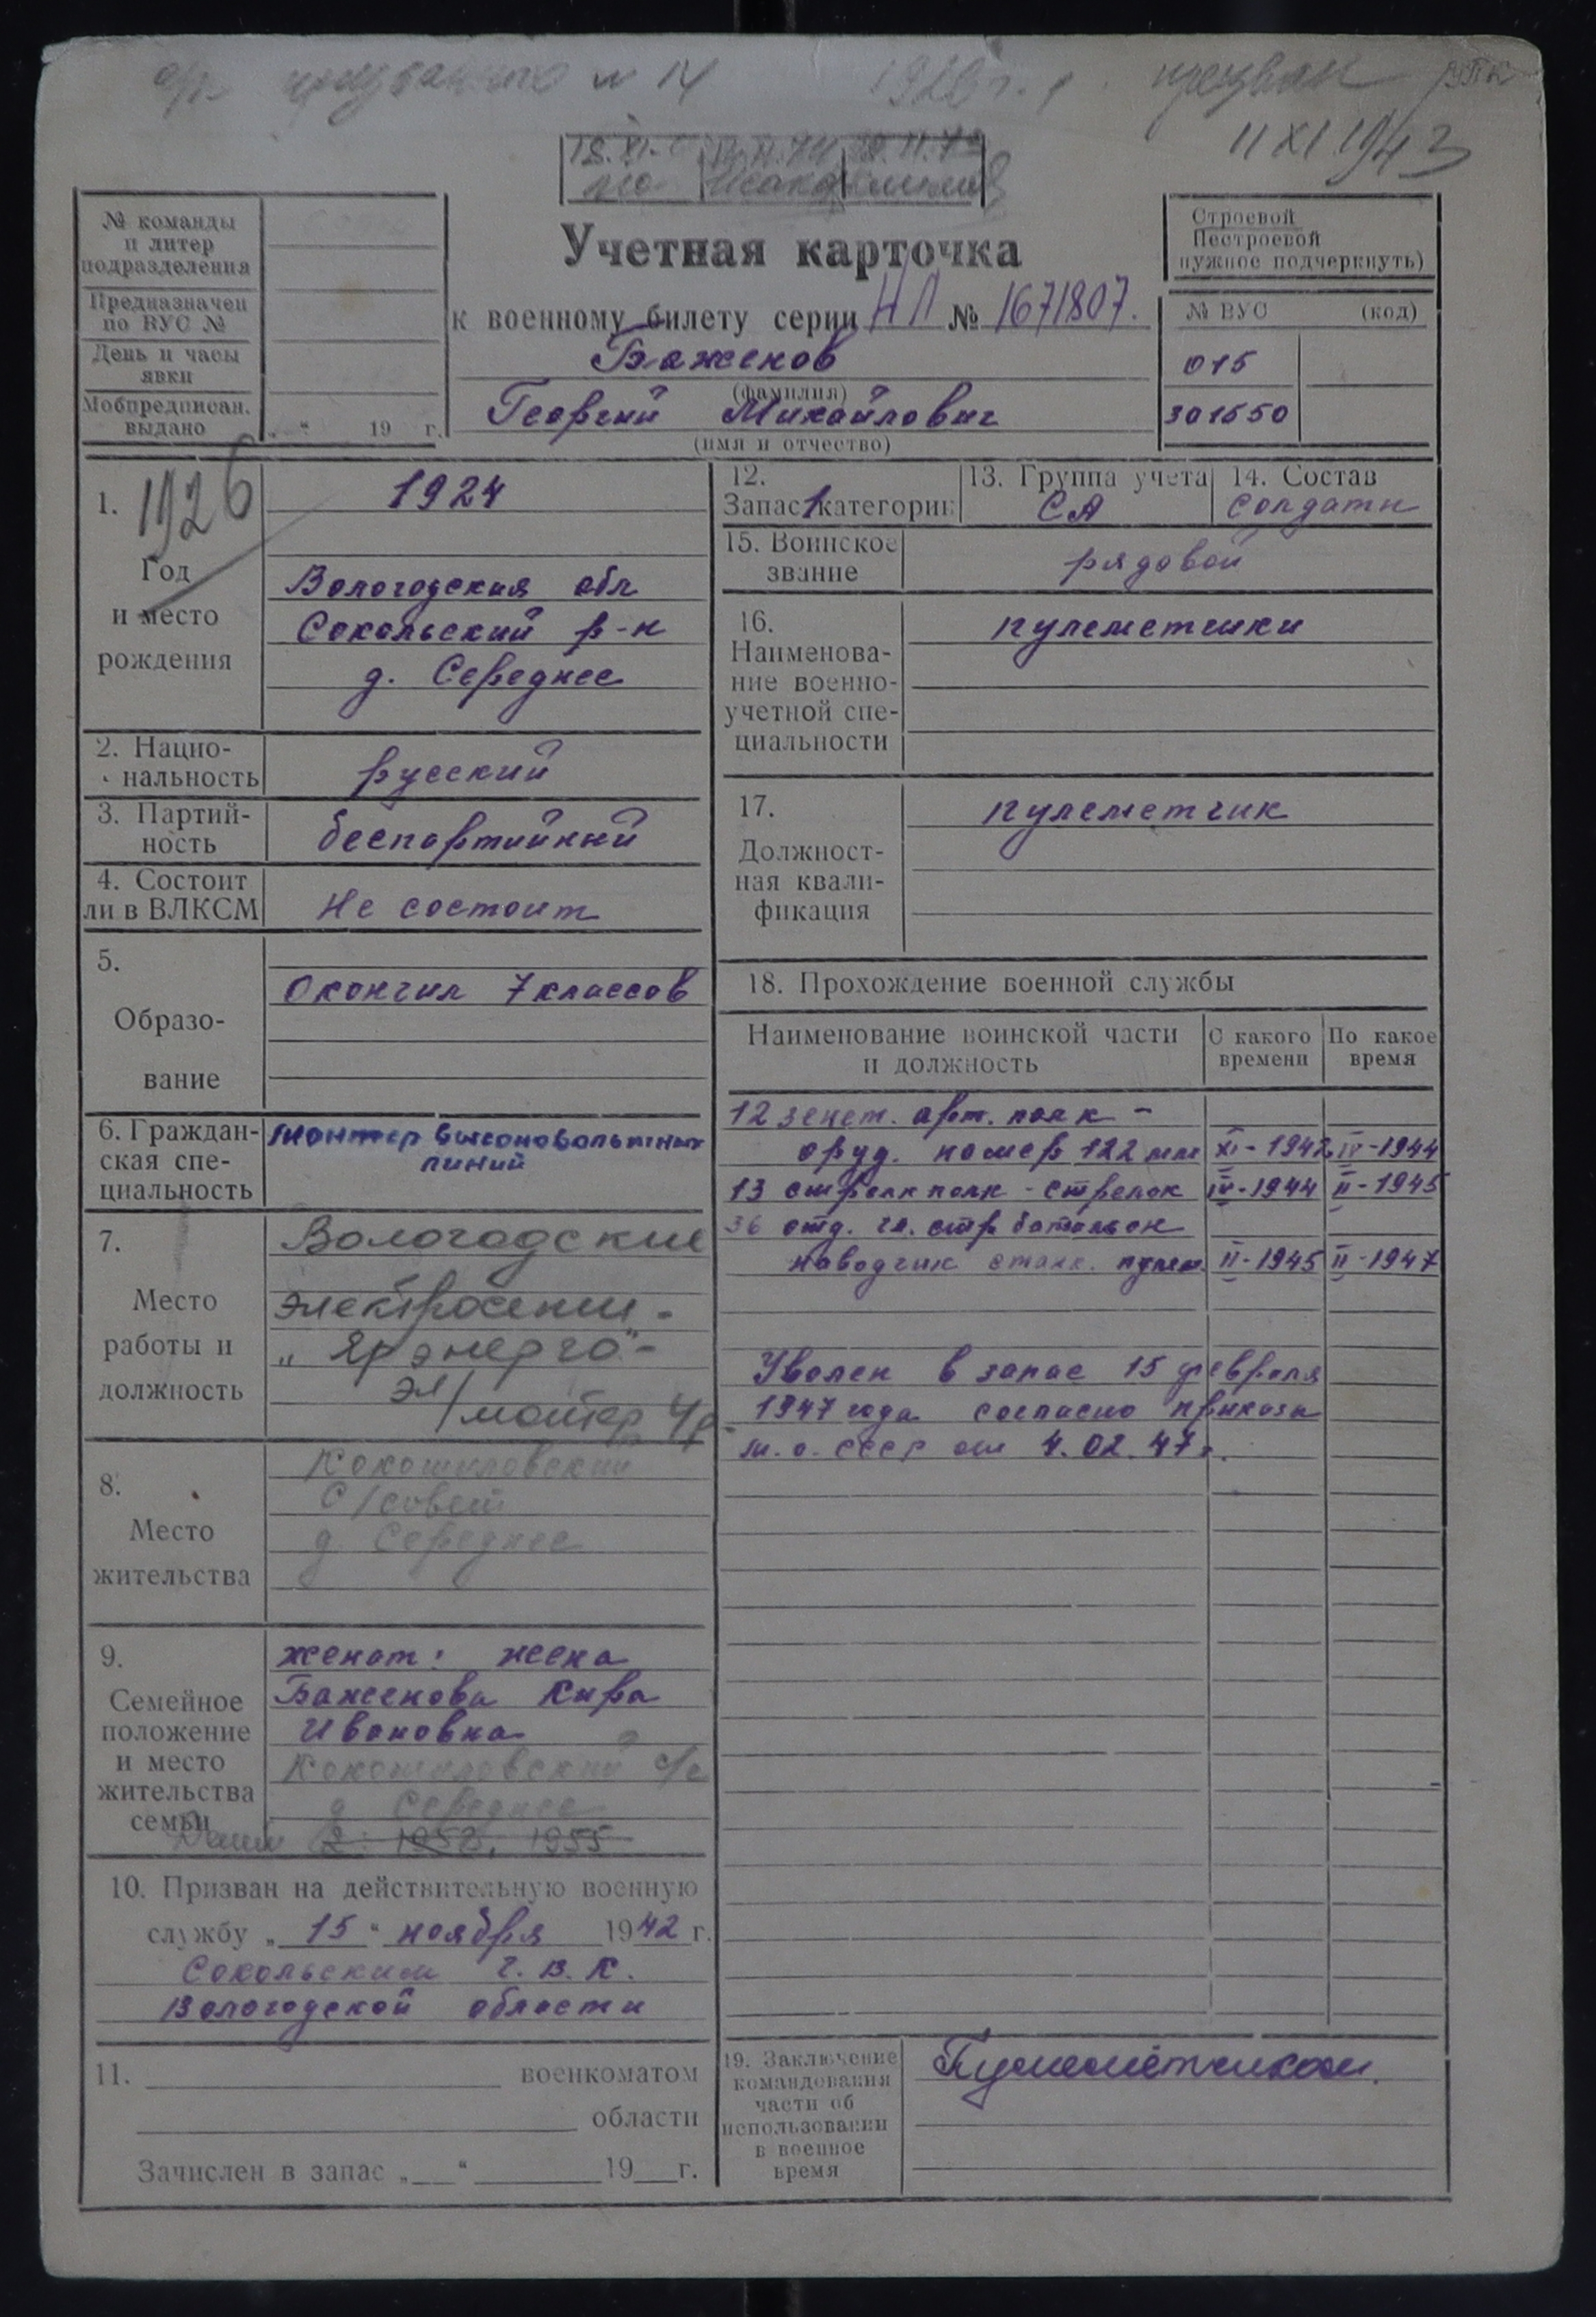 призван
11 XI 1943
Учетная карточка
к военному билету серии НЛ № 1671807.
Баженов
(фамилия)
Георгий Михайлович
(имя и отчество)
№ команды
и литер
подразделения
Предназначен
по ВУС №
День и часы
явки
Мобпредписан.
выдано
„ “ 19 г.
Строевой
Нестроевой
нужное подчеркнуть)
№ ВУС (код)
015
301550
1. 1926
Год
и место
рождения
1924
Вологодская обл
Сокольский р-н
д. Середнее
2. Нацио-
нальность
русский
3. Партий-
ность
беспартийный
4. Состоит
ли в ВЛКСМ
Не состоит
5.
Образо-
вание
Окончил 7 классов
6. Граждан-
ская спе-
циальность
монтер высоковольтных
линий
7.
Место
работы и
должность
Вологодские
электросети -
„Ярэнерго“ -
эл/монтер 4р.
8.
Место
жительства
Кокошиловский
с/совет
д Середнее
9.
Семейное
положение
и место
жительства
семьи
женат: жена
Баженова Кира
Ивановна
Кокошиловский с/с
д Середнее
Дети 2: 1958, 1955
10. Призван на действительную военную
службу „15“ ноября 1942 г.
Сокольским г.в.к.
Вологодской области
11. военкоматом
области
Зачислен в запас „ “ 19 г.
12.
Запас 1 категории
13. Группа учета
СА
14. Состав
солдаты
15. Воинское
звание
рядовой
16.
Наименова-
ние военно-
учетной спе-
циальности
пулеметчики
17.
Должност-
ная квали-
фикация
пулеметчик
18. Прохождение военной службы
Наименование воинской части
и должность
С какого
времени
По какое
время
12 зенет. арт. полк -
оруд. номер 122 мм XI-1942 IV-1944
13 стрелк полк - стрелок IV-1944 II-1945
36 отд. гл. стр батальон
наводчик станк. пулем. II-1945 II-1947
Уволен в запас 15 февраля
1947 года согласно приказа
м.о. СССР от 4.02.47г.
19. Заключение
командования
части об
использовании
в военное
время
Пулемётчиком.